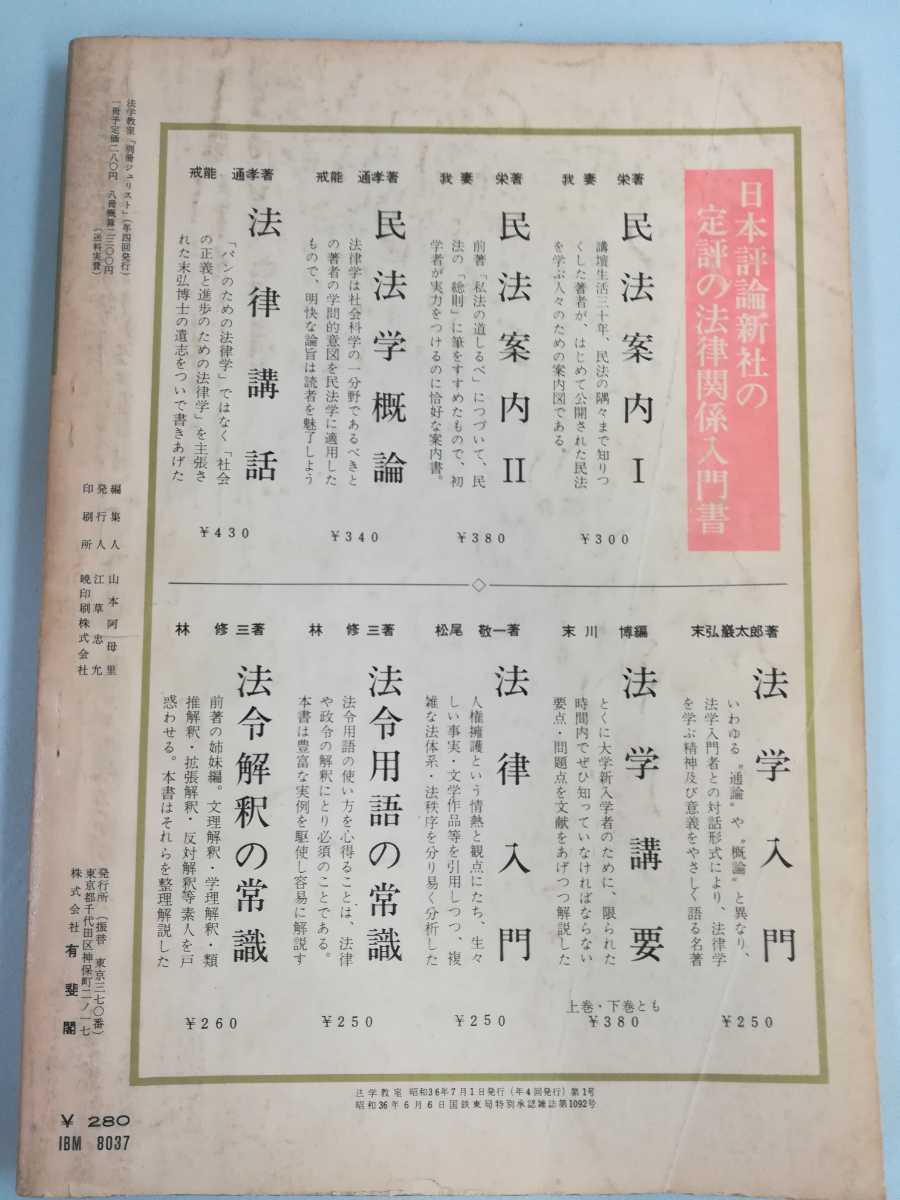 日本評論新社の
定評の法律関係入門書
我妻 栄著
民法案内Ⅰ
講壇生活三十年、民法の隅々まで知りつ
くした著者が、はじめて公開された民法
を学ぶ人々のための案内図である。
¥300
我妻 栄著
民法案内Ⅱ
前著「私法の道しるべ」につづいて、民
法の「総則」に筆をすすめたもので、初
学者が実力をつけるのに恰好な案内書。
¥380
戒能 通孝著
民法学概論
法律学は社会科学の一分野であるべきと
の著者の学問的意図を民法学に適用した
もので、明快な論旨は読者を魅了しよう
¥340
戒能 通孝著
法律講話
「パンのための法律学」ではなく「社会
の正義と進歩のための法律学」を主張さ
れた末弘博士の遺志をついで書きあげた
¥430
末弘嚴太郎著
法学入門
いわゆる〝通論〟や〝概論〟と異なり、
法学入門者との対話形式により、法律学
を学ぶ精神及び意義をやさしく語る名著
¥250
末川 博編
法学講要
とくに大学新入学者のために、限られた
時間内でぜひ知っていなければならない
要点・問題点を文献をあげつつ解説した
上巻・下巻とも
¥380
松尾 敬一著
法律入門
人権擁護という情熱と観点にたち、生々
しい事実・文学作品等を引用しつつ、複
雑な法体系・法秩序を分り易く分析した
¥250
林 修三著
法令用語の常識
法令用語の使い方を心得ることは、法律
や政令の解釈にとり必須のことである。
本書は豊富な実例を駆使し容易に解説す
¥250
林 修三著
法令解釈の常識
前著の姉妹編。文理解釈・学理解釈・類
推解釈・拡張解釈・反対解釈等素人を戸
惑わせる。本書はそれらを整理解説した
¥260
法学教室「別冊ジュリスト」(年四回発行)
一冊予定価二八〇円 八冊概算二三〇〇円
(送料実費)
編集人 山本阿母里
発行人 江草忠允
印刷所 暁印刷株式会社
発行所 (振替 東京三七〇番)
東京都千代田区神保町二ノ一七
株式会社 有斐閣
法学教室 昭和36年7月1日発行(年4回発行)第1号
昭和36年6月6日国鉄東局特別承認雑誌第1092号
¥ 280
IBM 8037